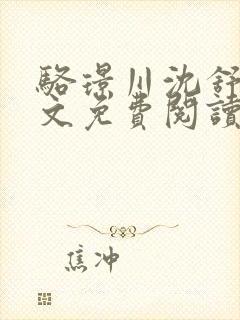 駱璟川沈舒
文免費閱讀
焦冲